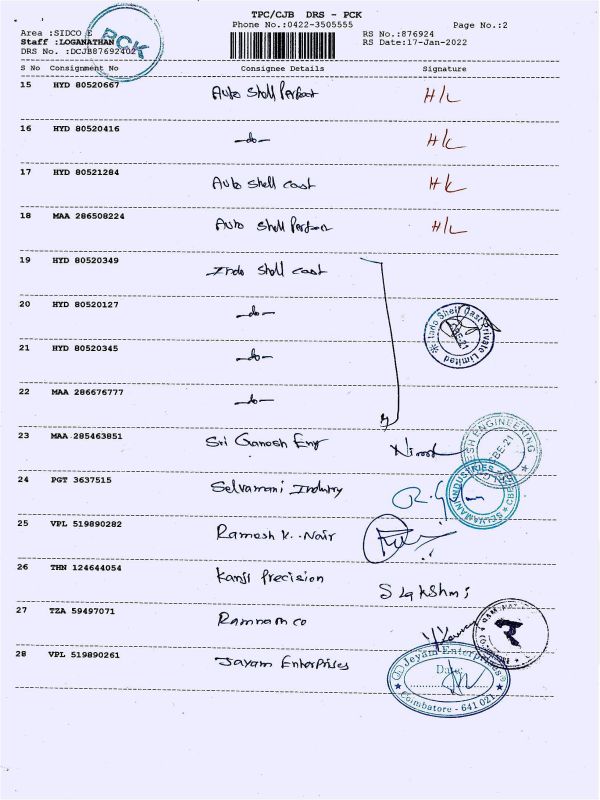 TPC/CJB DRS - PCK
Phone No.:0422-3505555 Page No.:2
Area :SIDCO E RS No.:876924
Staff :LOGANATHAN RS Date:17-Jan-2022
DRS No. :DCJB87692402
PCK
S No Consignment No Consignee Details Signature
15 HYD 80520667 Auto Shell Perfect H/L
16 HYD 80520416 —do— H/L
17 HYD 80521284 Auto Shell Cast H/L
18 MAA 286508224 Auto Shell H/L
19 HYD 80520349 Indo Shell Cast
20 HYD 80520127 —do—
Indo Shell Cast Private Limited
CBE-21
21 HYD 80520345 —do—
22 MAA 286676777 —do—
23 MAA 285463851 Sri Ganesh Eng
ESH ENGINEERING
CBE-21
24 PGT 3637515 Selvamani Industry
SELVAMANI INDUSTRIES
25 VPL 519890282 Ramesh K. Nair
26 THN 124644054 Kanji Precision S Lakshmi
27 TZA 59497071 Ramnam co
र
28 VPL 519890261 Jayam Enterprises
Jeyam Enterprises
Date:
Coimbatore - 641 021